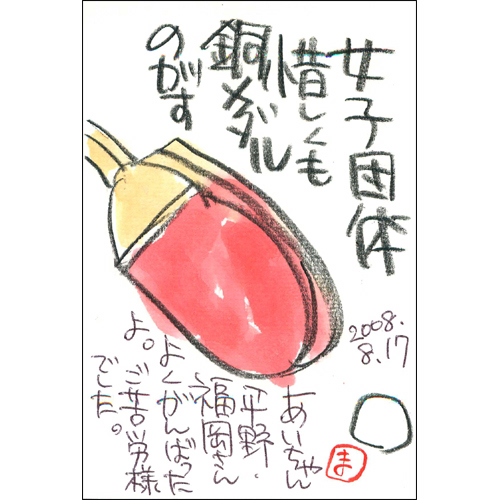 女子団体
惜しくも
銅メダル
のがす
2008.
8.17
あいちゃん
平野・
福岡さん
よくがんばった
よ。ご苦労様
でした。
ま